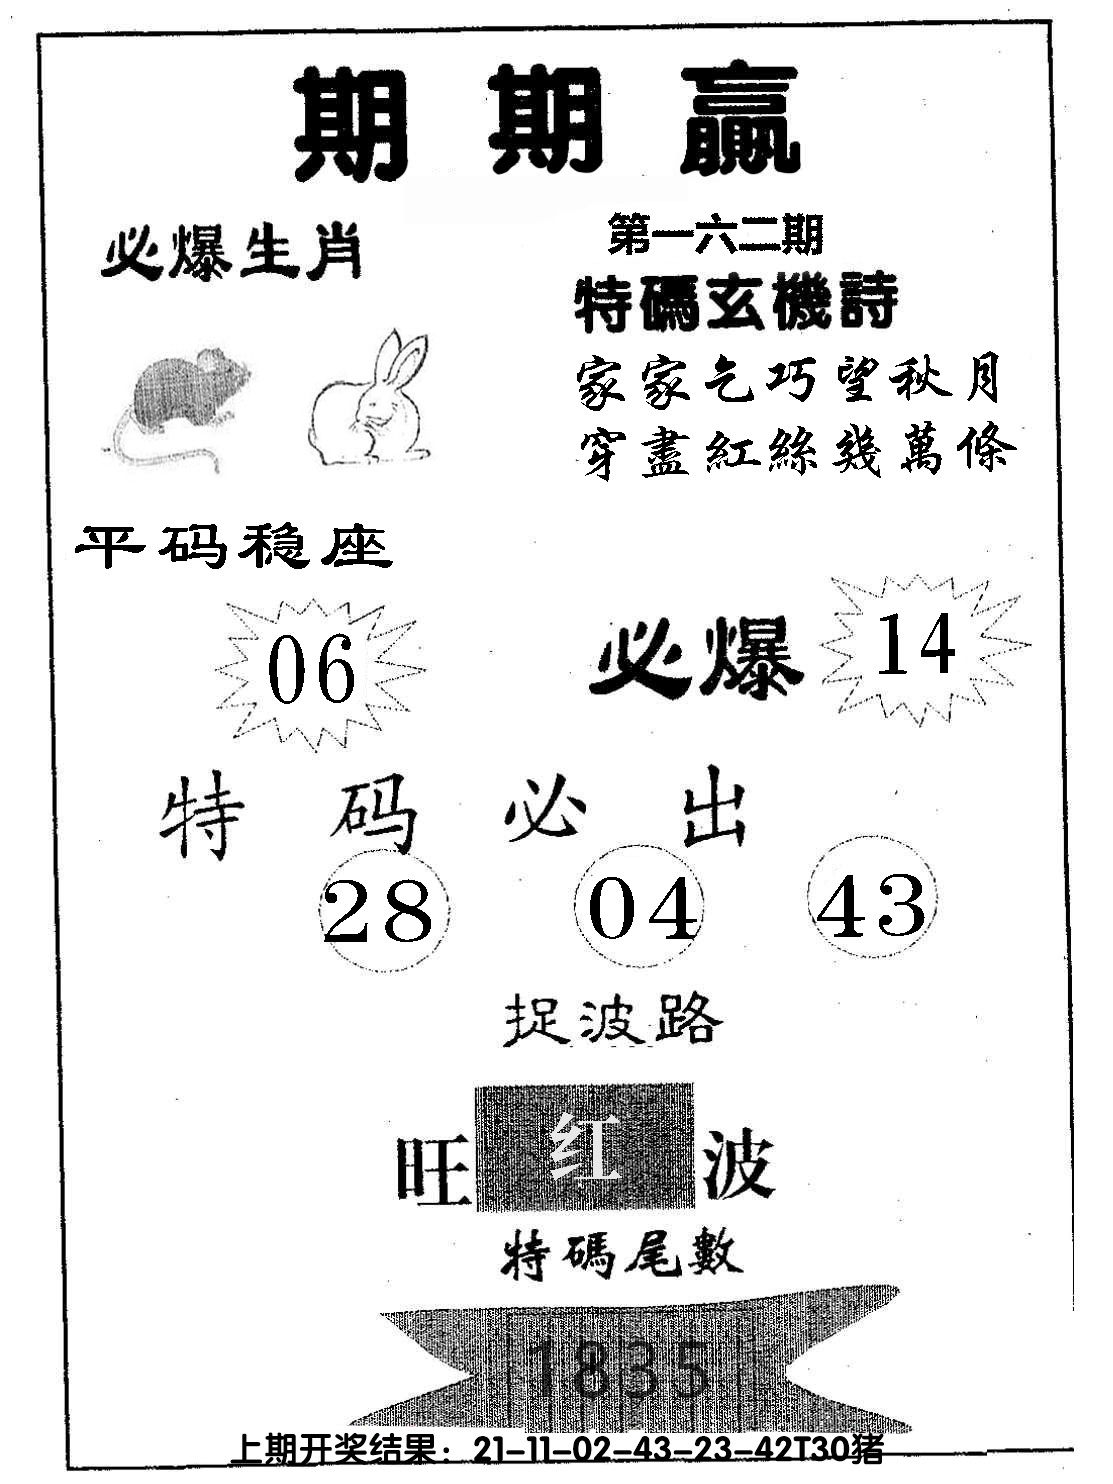 期期赢
必爆生肖
第一六二期
特碼玄機詩
家家乞巧望秋月
穿盡紅絲幾萬條
平码稳座
06
必爆 14
特码必出
28 04 43
捉波路
旺 红 波
特碼尾數
1835
上期开奖结果：21-11-02-43-23-42T30猪